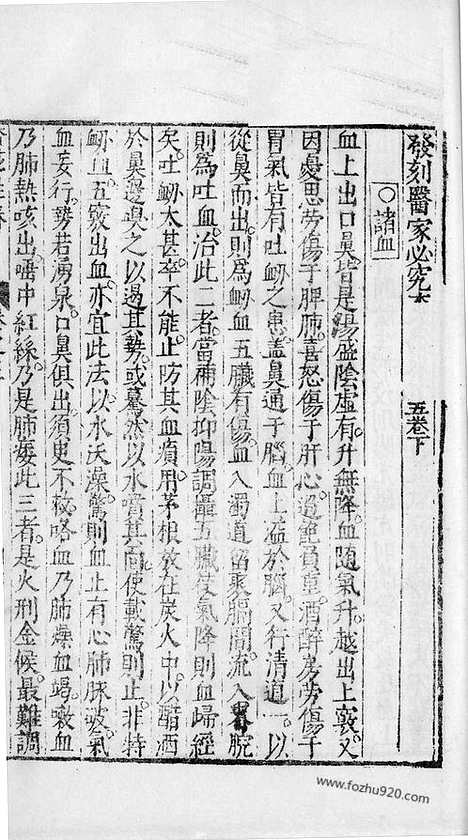 發刻醫家必究本 五卷下
○諸血
血上出口鼻皆是陽盛陰虛有升無降血隨氣升越出上竅又
因憂思勞傷于脾肺喜怒傷于肝心過飽負重酒醉房勞傷于
胃氣皆有吐衂之患盖鼻通于腦血上溢於腦又行清道一以
從鼻而出則為衂血五臟有傷血入濁道留聚膈間流入胃脘
則為吐血治此二者當補陰抑陽調攝五臟使氣降則血歸經
矣吐衂太甚卒不能止防其血瀆用茅根放在炭火中以醋酒
於鼻邊嗅之以遏其勢或驀然以水噀其面使載驚則止非特
衂血五竅出血亦宜此法以水沃澡驚則血止有心肺脉破氣
血妄行勢若涌泉口鼻俱出須臾不救咯血乃肺燥血竭嗽血
乃肺熱咳出嚥中紅絲乃是肺痿此三者是火刑金候最難調
www.fozhu920.com